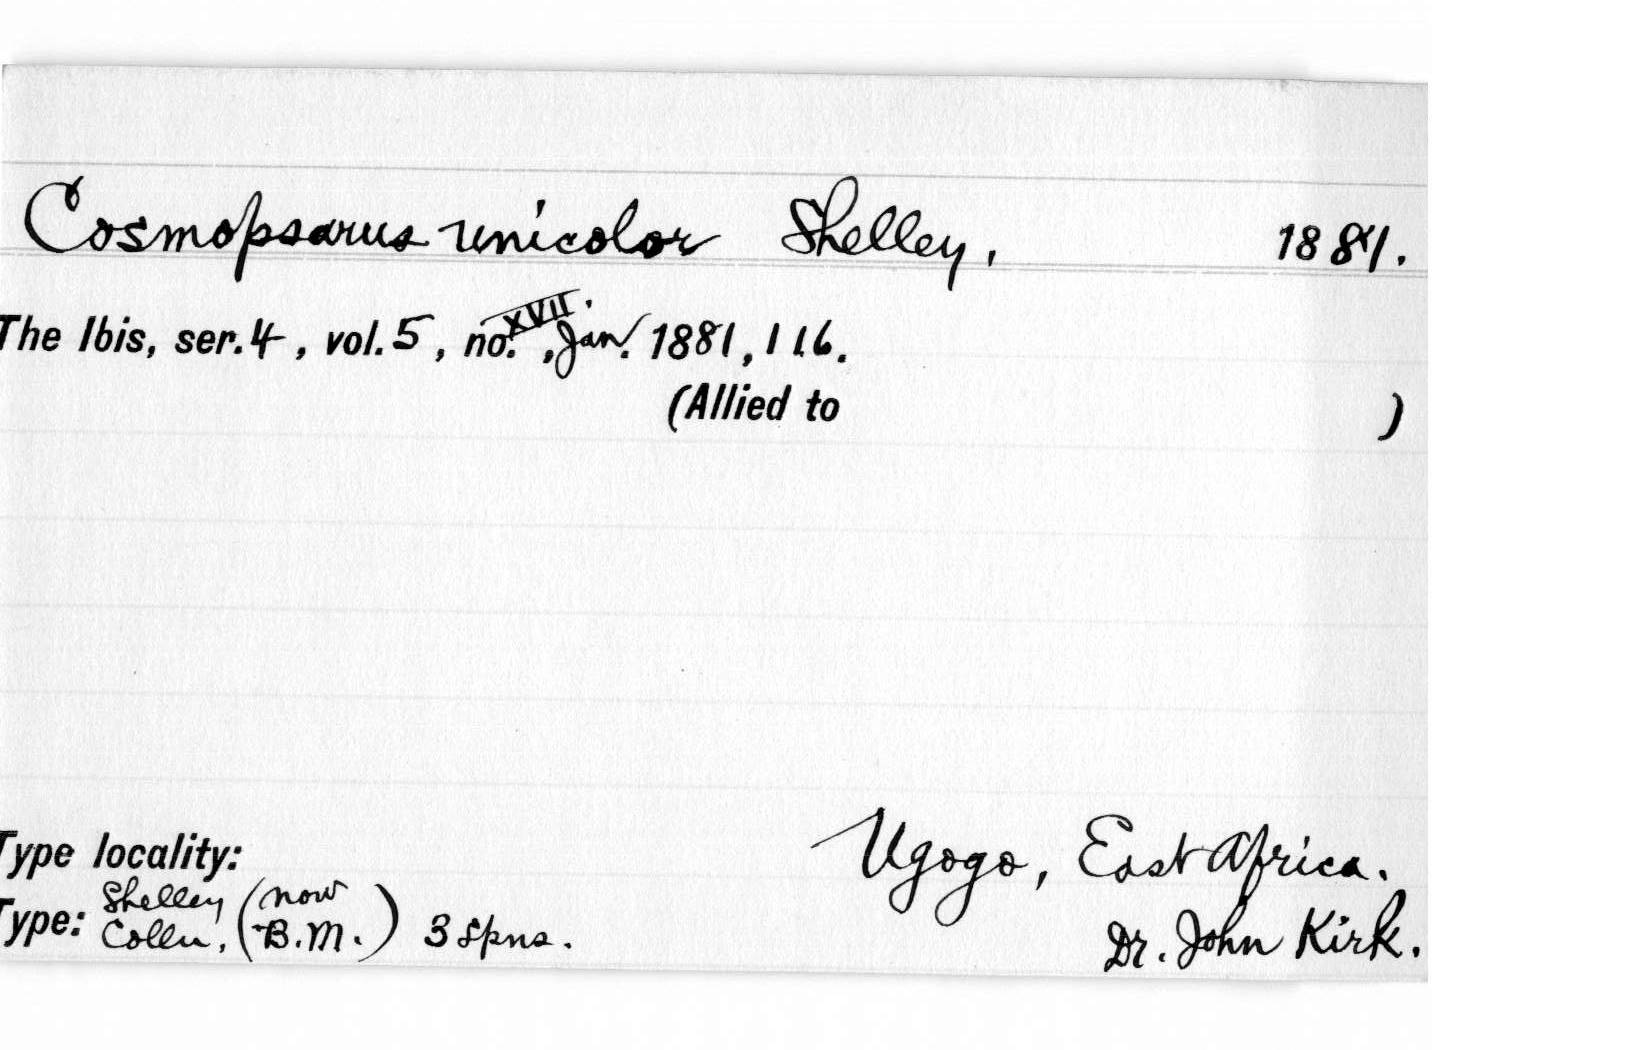 Cosmopsarus unicolor Shelley, 1881.
The Ibis, ser. 4, vol. 5, no. XVII., Jan. 1881, 116.
(Allied to )
Type locality: Ugogo, East Africa.
Type: Shelley Colln, (now B.M.) 3 spns. Dr. John Kirk.